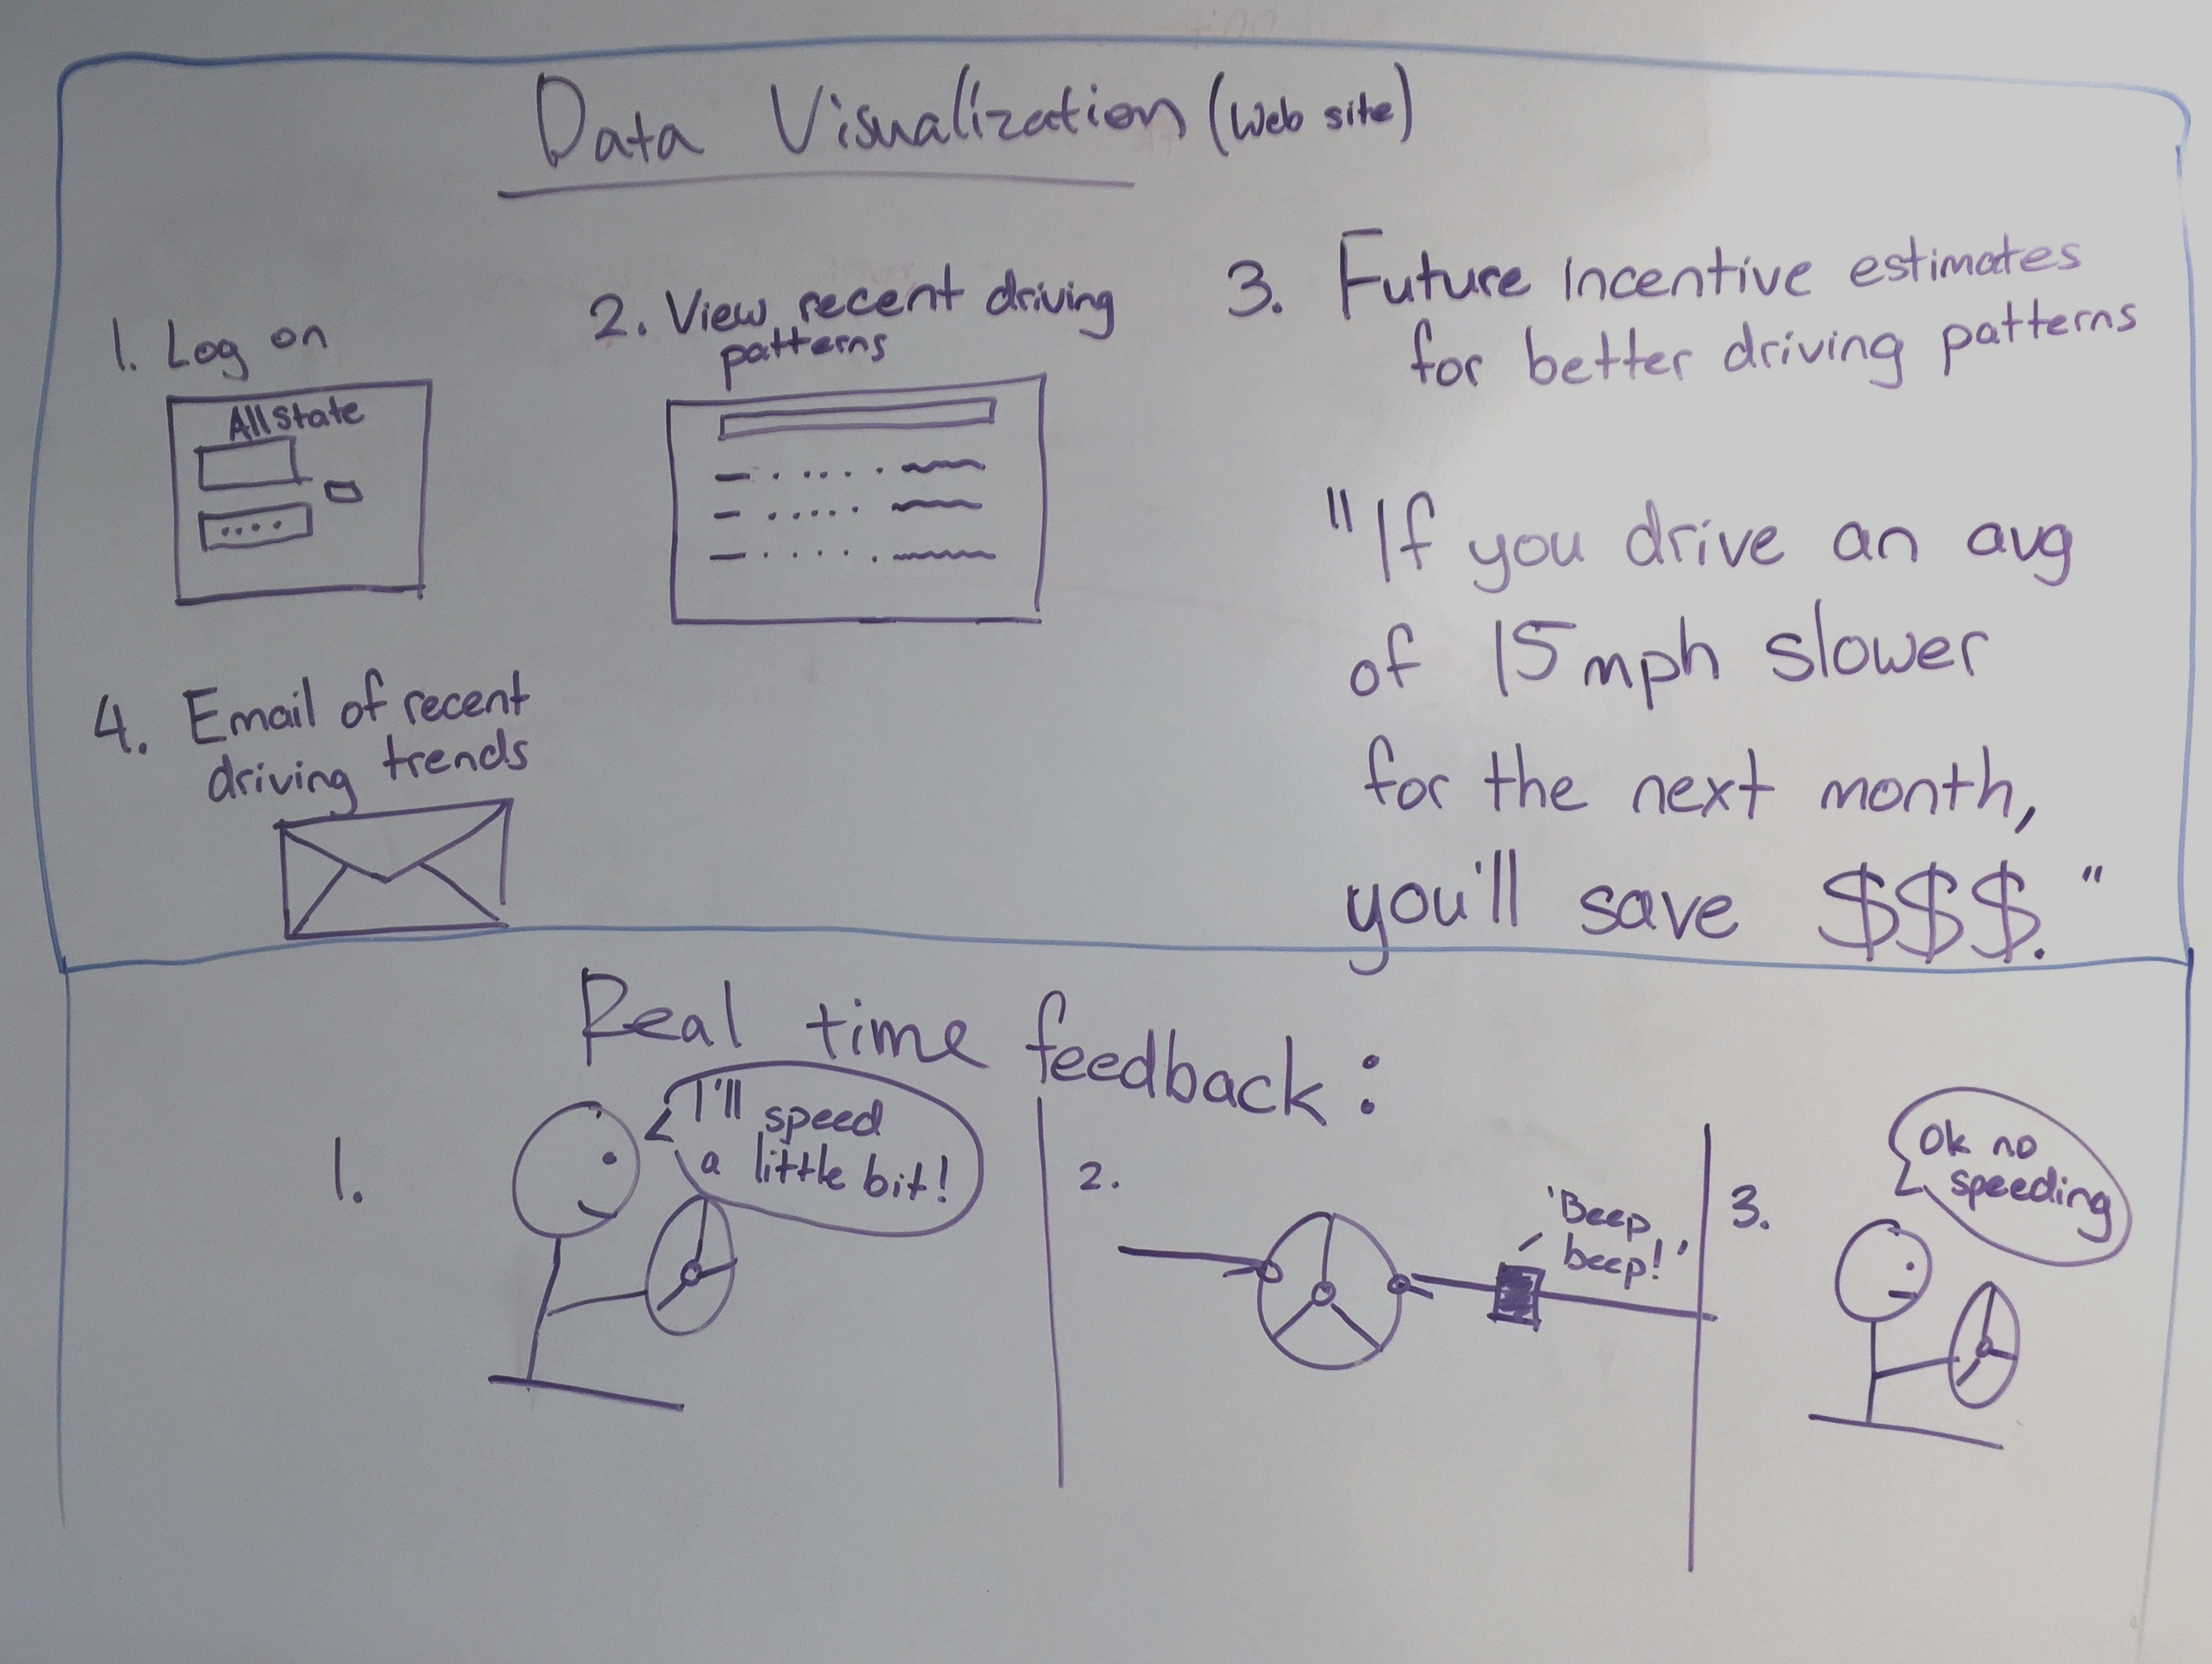 Data Visualization (Web site)
1. Log on
Allstate
2. View recent driving
patterns
3. Future incentive estimates
for better driving patterns
"If you drive an avg
of 15 mph slower
for the next month,
you'll save $$$."
4. Email of recent
driving trends
Real time feedback:
1.
I'll speed
a little bit!
2.
'Beep
beep!'
3.
Ok no
speeding